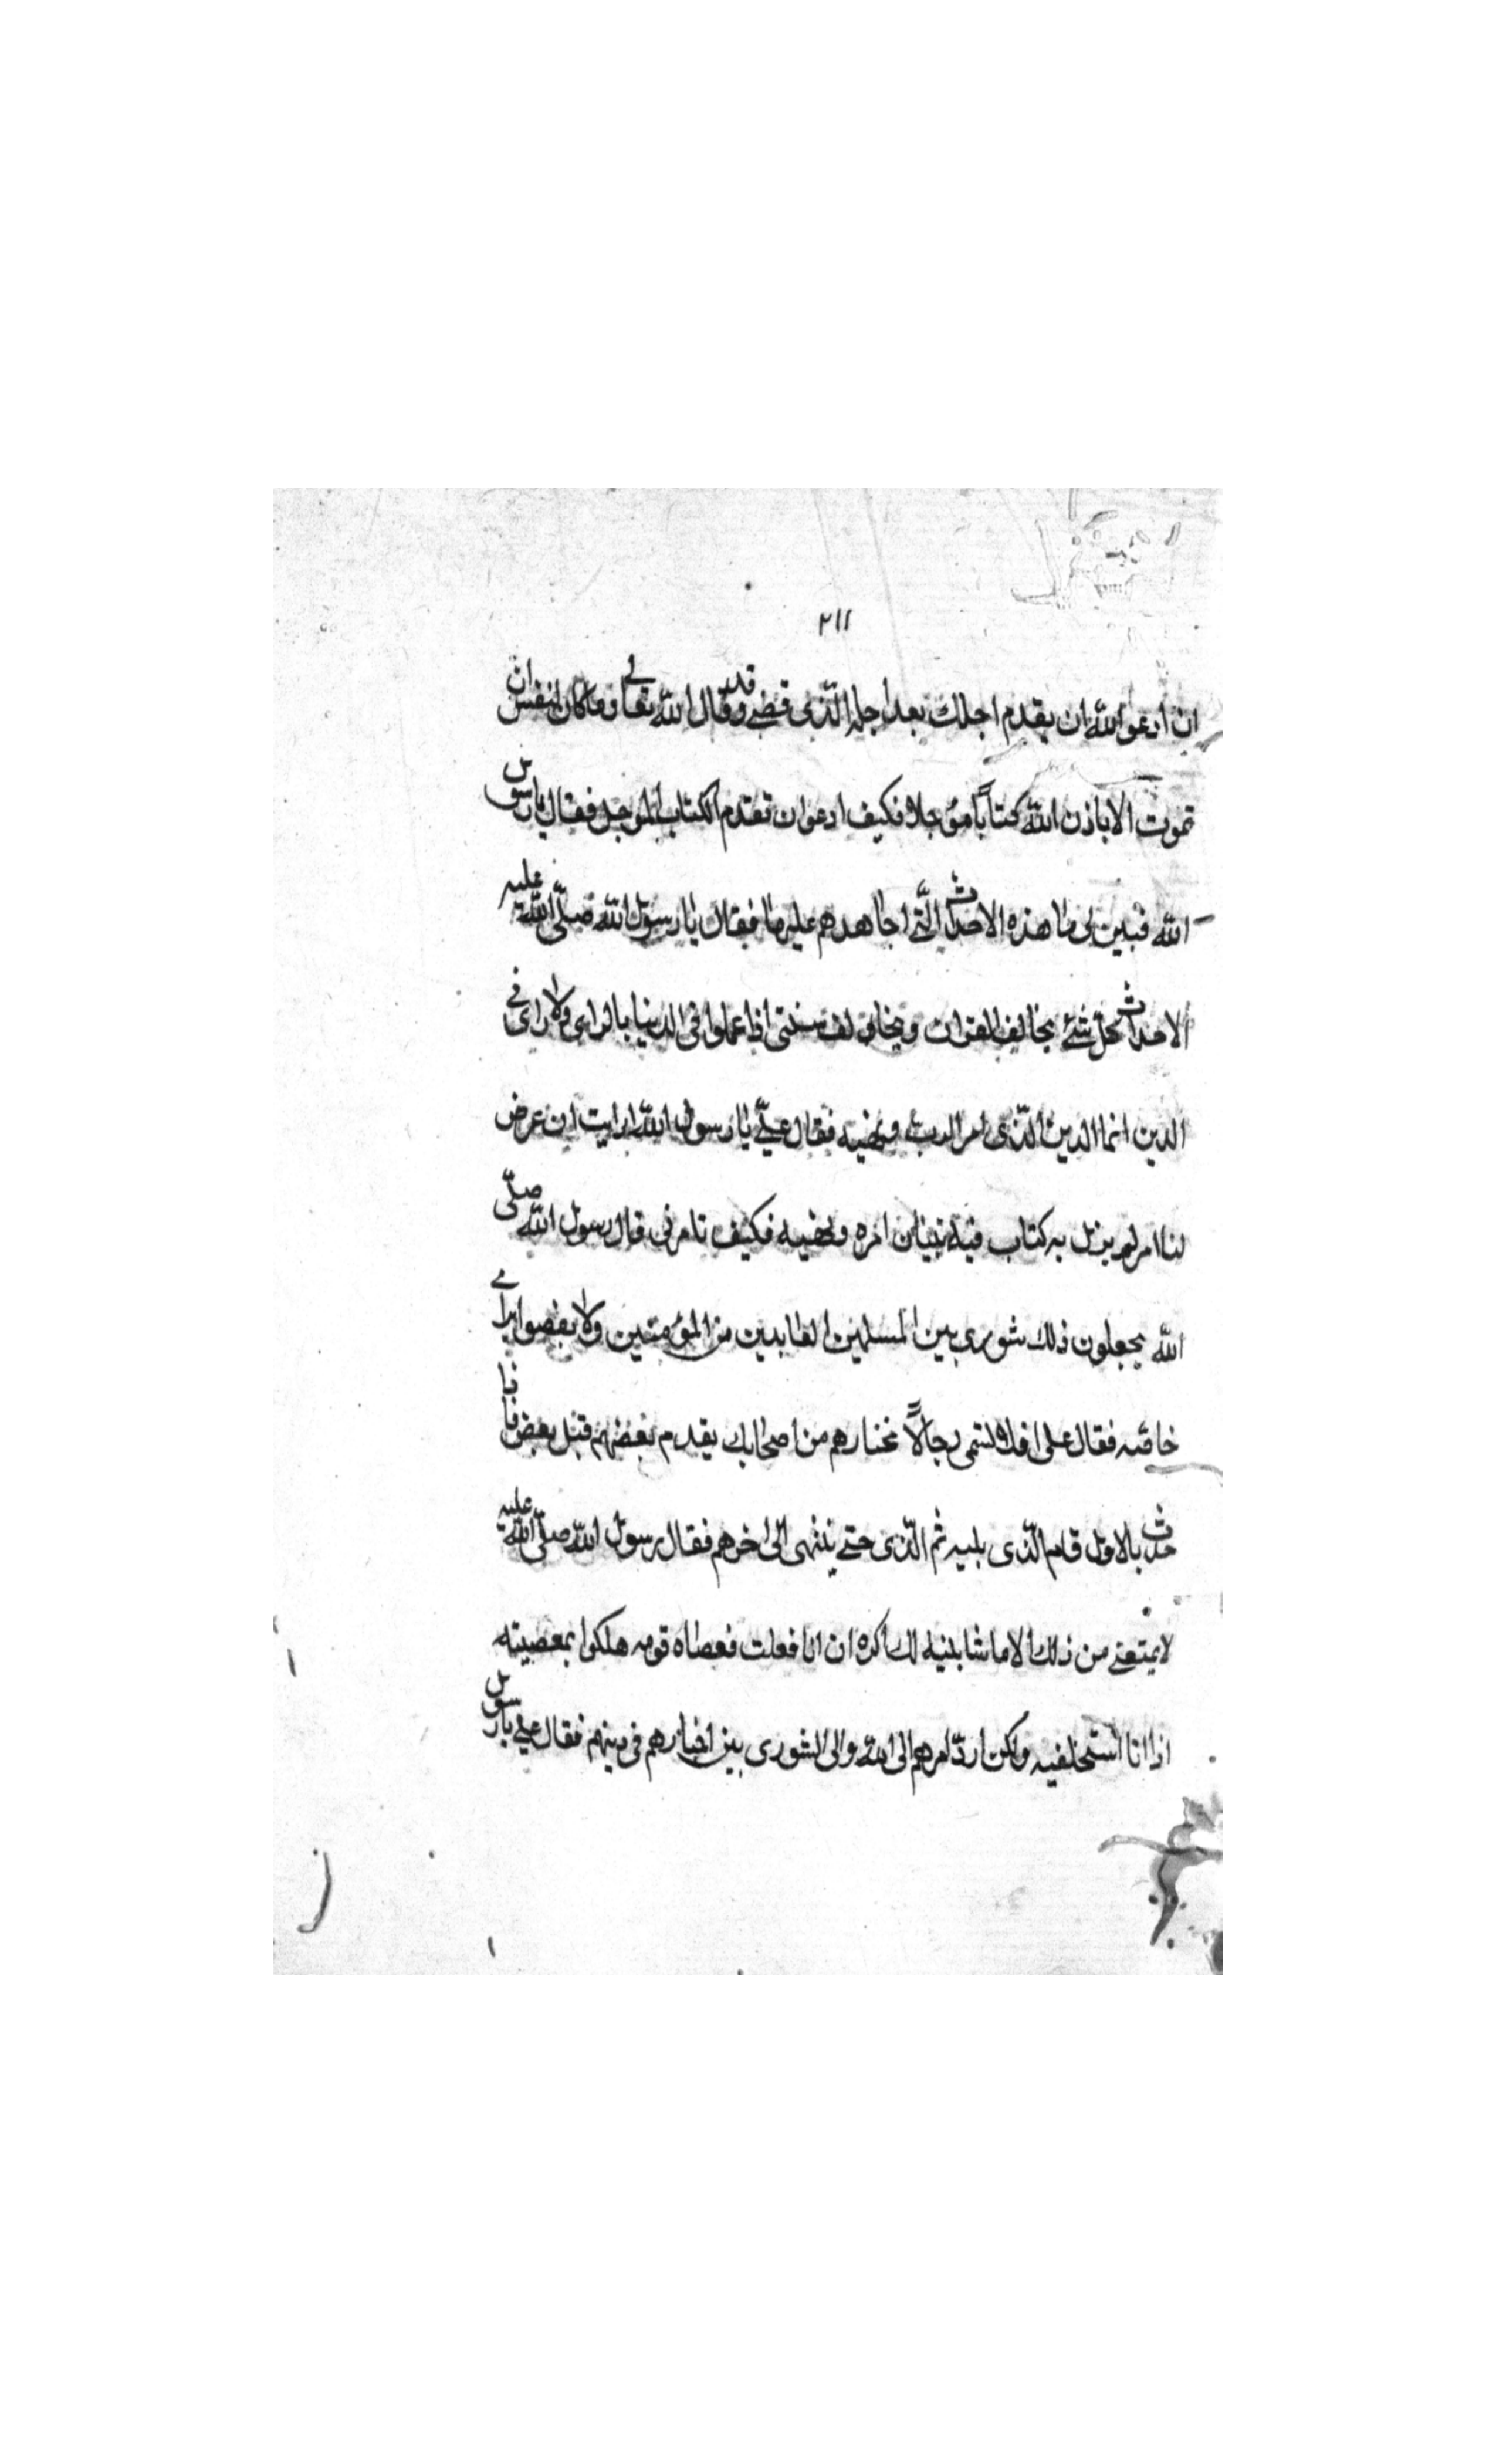 ٢١١
ان ادعو الله ان يقدم اجلك بعد اجله الذى قضى وقد قال الله تعالى وما كان لنفس ان
تموت الا باذن الله كتاباً مؤجلا فكيف ادعو ان تقدم الكتاب المؤجل فقال يا رسول
الله فبين لى ما هذه الاحداث الّتى اجاهدهم عليها فقال يا رسول الله صلّى الله عليه
الاحداث كل شئ يخالف القران ويخاولف سنتى اذا عملوا فى الدنيا بالراى ولا راى فى
الدين انما الدين الّذى امر الرب ونهيه فقال علىّ يا رسول الله ارايت ان عرض
لنا امر لم ينزل به كتاب فيه تبيان امره ونهيه فكيف تامرنى قال رسول الله صلّى
الله يجعلون ذلك شورى بين المسلمين العابدين من المؤمنين ولا يقضوا براى
خاصّه فقال على افلا لتسمى رجالاً نختارهم من اصحابك يقدم بعضهم قبل بعض فاذا
حدث بالاول قام الّذى يليه ثم الّذى حتى ينتهى الى اخرهم فقال رسول الله صلّى الله عليه
لا يمنعنى من ذلك الا ما شا بنيه لك اكره ان انا فعلت فعصاه قومه هلكوا بمعصيته
اذا انا استخلفيه ولكن اردّ امرهم الى الله والى الشورى بين اخيارهم فى دينهم فقال على يا رسول